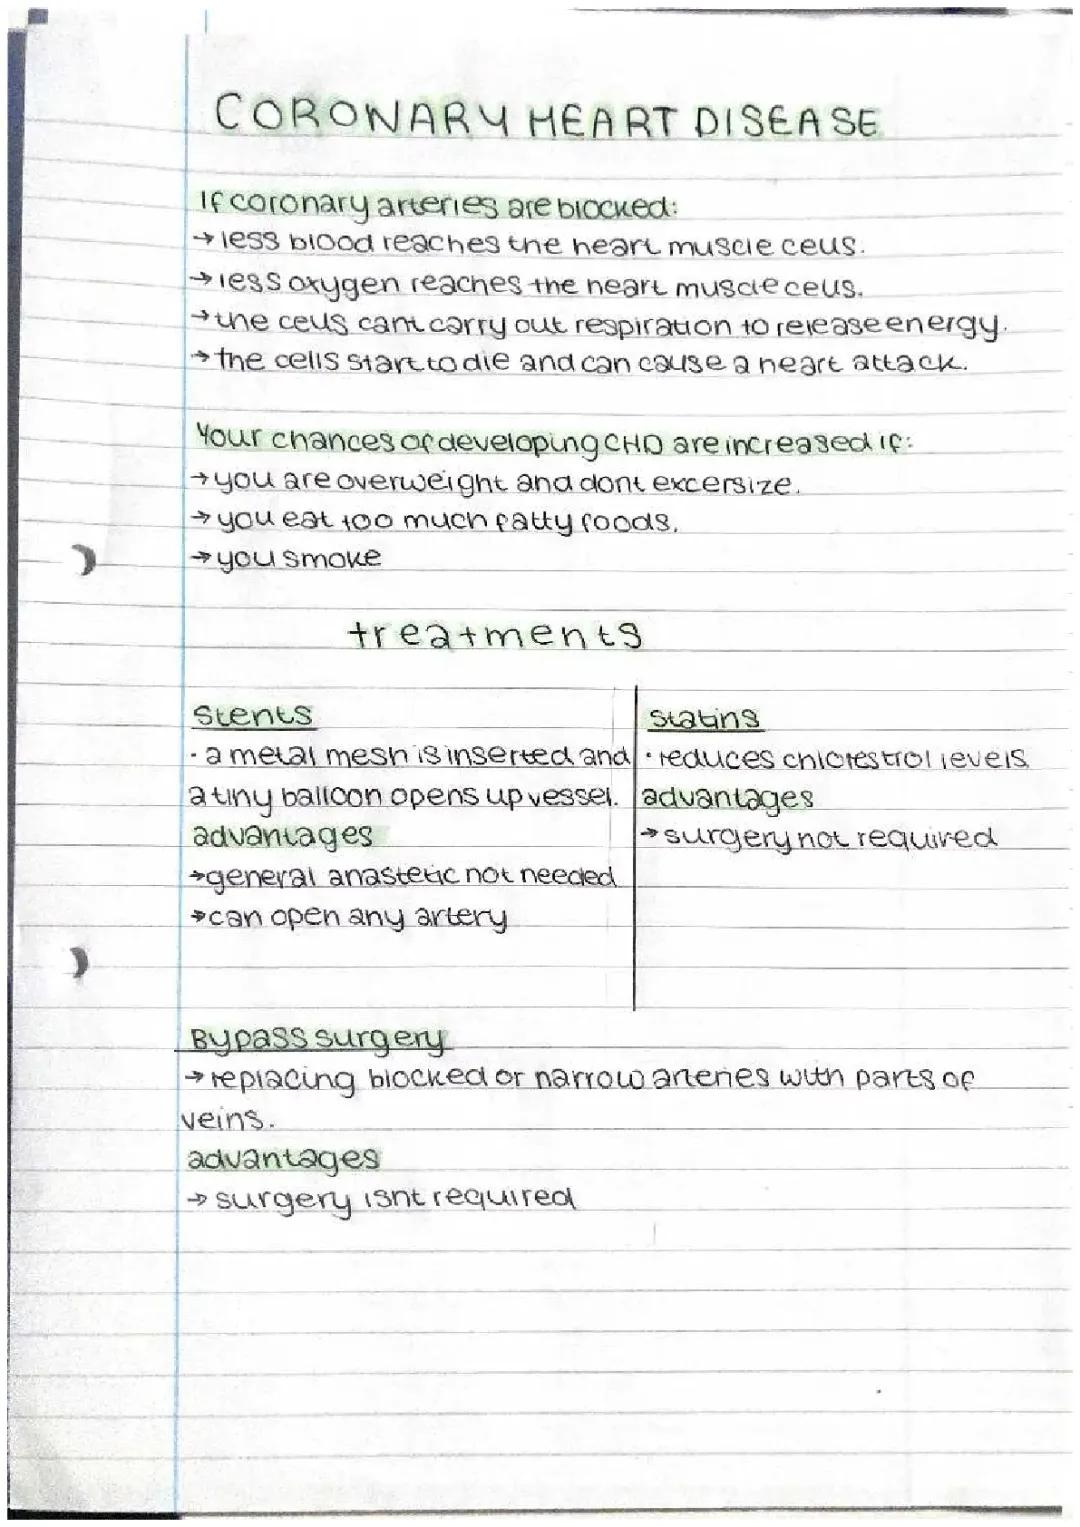 CORONARY HEART DISEASE
If coronary arteries are blocked:
→ less blood reaches the heart muscle cells.
→ less oxygen reaches the heart muscle cells.
→ the cells cant carry out respiration to release energy.
→ the cells start to die and can cause a heart attack.
Your chances of developing CHD are increased if:
→ you are overweight and dont excersize.
→ you eat too much fatty foods.
→ you smoke
treatments
Stents
· a metal mesh is inserted and
a tiny balloon opens up vessel.
advantages
→ general anastetic not needed
→ can open any artery
Statins
· reduces chlorestrol levels
advantages
→ surgery not required
Bypass surgery
→ replacing blocked or narrow arteries with parts of
veins.
advantages
→ surgery isnt required